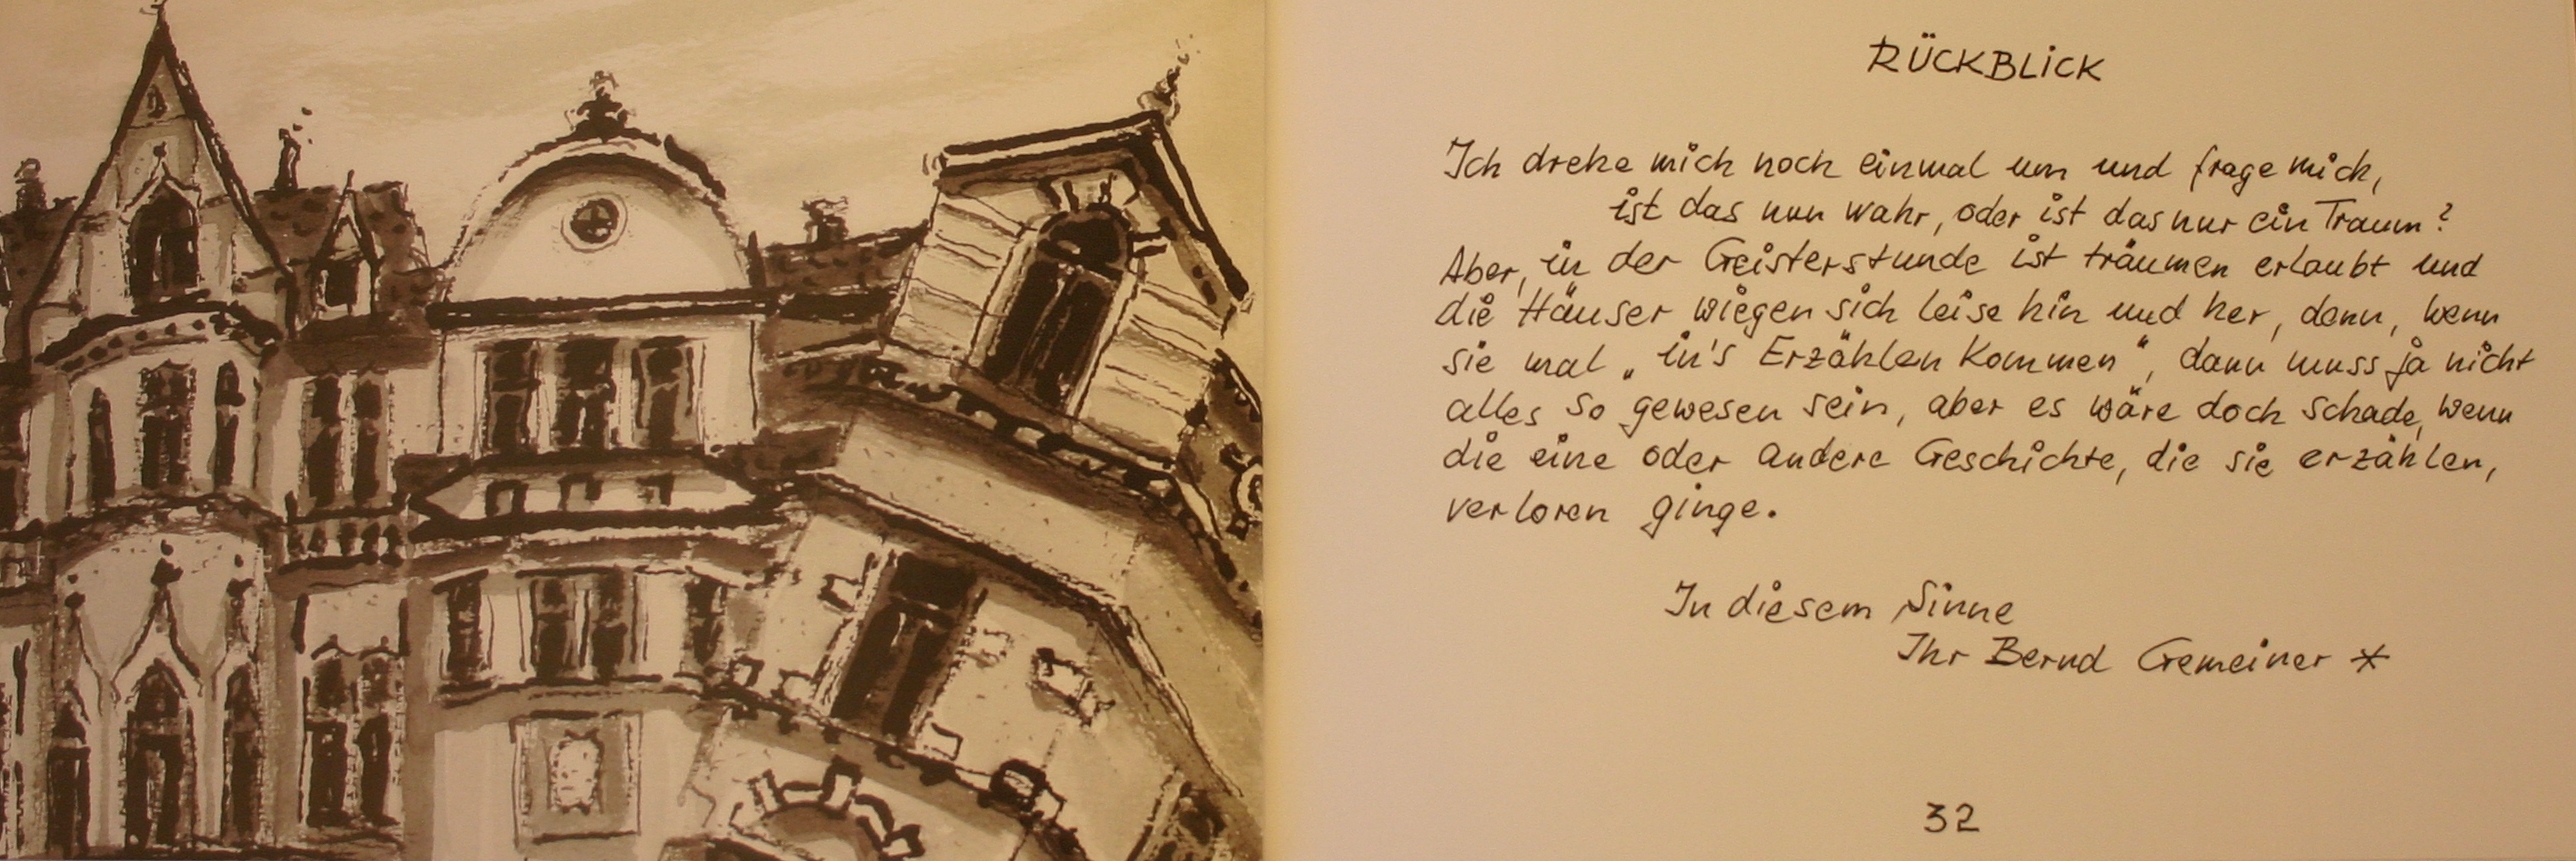 RÜCKBLICK
Ich drehe mich noch einmal um und frage mich,
ist das nun wahr, oder ist das nur ein Traum?
Aber, in der Geisterstunde ist träumen erlaubt und
die Häuser wiegen sich leise hin und her, denn, wenn
sie mal „in's Erzählen kommen", dann muss ja nicht
alles so gewesen sein, aber es wäre doch schade, wenn
die eine oder andere Geschichte, die sie erzählen,
verloren ginge.
In diesem Sinne
Ihr Bernd Gemeiner *
32